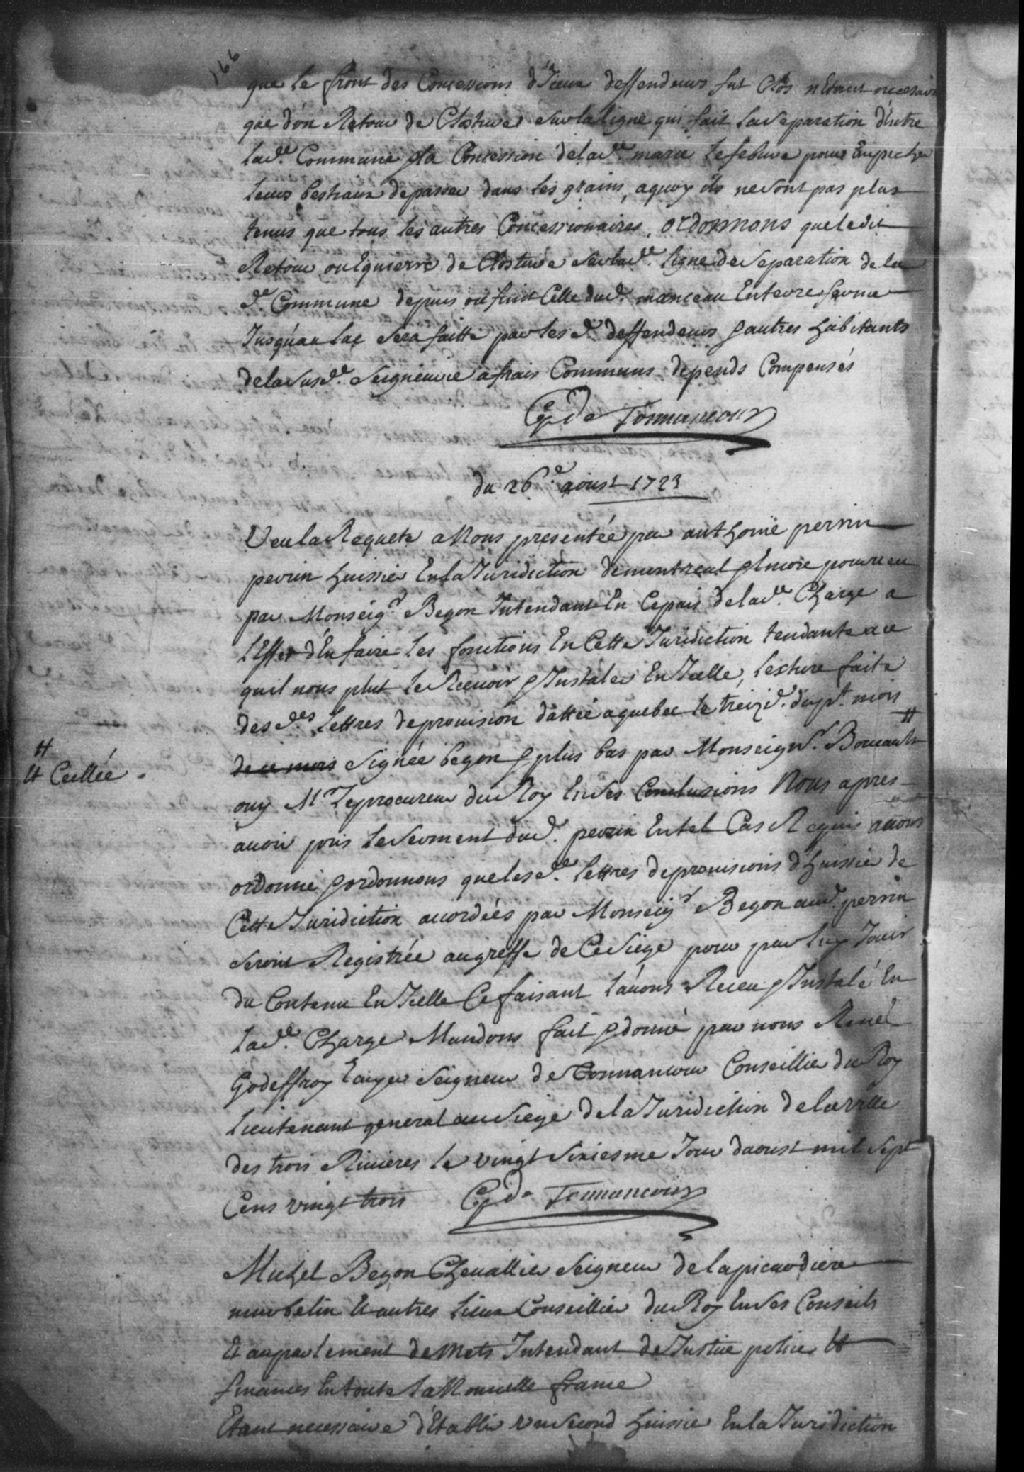 166
que le front des Concessions d'Iceux deffendeurs fut Clos n'Etant necessaire
que d'ón Retour de Cloture sur la ligne qui fait la separation d'Entre
lad.e Commune & la Concession de lad.e marie lefebvre pour Empecher
leurs bestiaux de passer dans les grains, aquoy ils ne sont pas plus
tenus que tous les autres Concessionaires, ordonnons que ledit
Retour ou Equierre de Cloture sur lad.e ligne de separation de la
d.e Commune depuis ou finit Celle dud. manceau En terre ferme
Jusqu'au lac sera faitte par les d. deffendeurs & autres habitants
de la susd.e Seigneurie a frais Communs depends Compensés
G de Tonnancour
du 26.e aoust 1723
Veu la Requete a Nous presentée par anthoine perrin
perrin huissier En la Juridiction de montreal & Encore pourveu
par Monseig.r Begon Intendant En Ce pais de lad.e Charge a
l'Effet d'En faire les fonctions En Cette Juridiction tendante a ce
quil nous plut le Recevoir & Instaler En Icelle, lecture faite
des d.es lettres de provision dattée a quebec le treiz.e du p.nt mois #
de ce mois signée begon & plus bas par Monseign.r Boucault
# # Cellée.
ouy M.r le procureur du Roy En ses Conclusions Nous apres
avoir pris le serment dud. perrin En tel Cas Requis avons
ordonne & ordonnons que les d.e lettres de provisions d'huissier de
Cette Juridiction accordées par Monseig.r Begon aud. perrin
seront Registrée au greffe de Ce siege pour par luy Jouir
du Contenu En Icelle Ce faisant l'avons Receu & Instalé En
lad.e Charge Mandons fait & donné par nous René
Godeffroy Ecuyer Seigneur de Tonnancour Conseillier du Roy
lieutenant general au siege de la Juridiction de la ville
des trois Rivieres le vingt sixiesme Jour daoust mil sept
Cens vingt trois G de Tonnancour
Michel Begon Chevallier Seigneur de la picardiere
murbelin & autres lieux Conseillier du Roy En ses Conseils
& au parlement de Mets Intendant de Justice police &
finances En toute la Nouvelle france
Etant necessaire d'Etablir un second huissier En la Juridiction